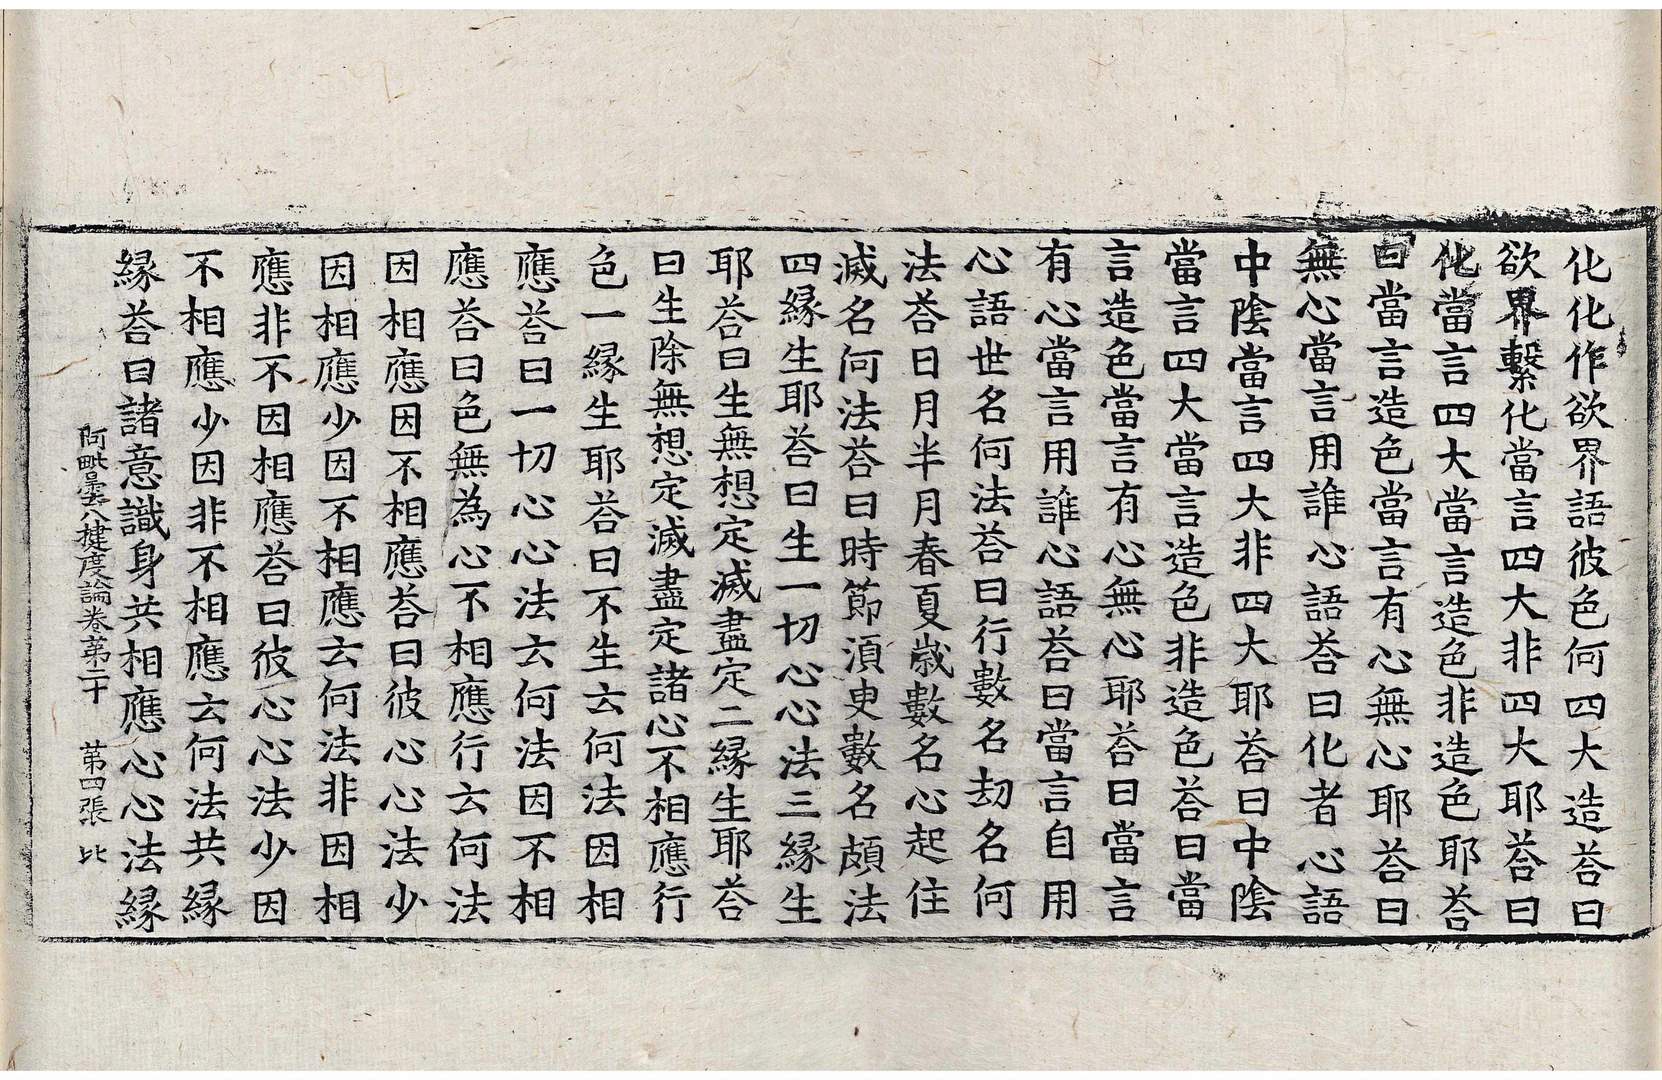 化化作欲界語彼色何四大造荅曰
欲界繫化當言四大非四大耶荅曰
化當言四大當言造色非造色耶荅
曰當言造色當言有心無心耶荅曰
無心當言用誰心語荅曰化者心語
中陰當言四大非四大耶荅曰中陰
當言四大當言造色非造色荅曰當
言造色當言有心無心耶荅曰當言
有心當言用誰心語荅曰當言自用
心語世名何法荅曰行數名劫名何
法荅曰月半月春夏歳數名心起住
滅名何法荅曰時節湏史數名頗法
四縁生耶荅曰生一切心心法三縁生
耶荅曰生無想定滅盡定二縁生耶荅
曰生除無想定滅盡定諸心不相應行
色一縁生耶荅曰不生云何法因相
應荅曰一切心心法云何法因不相
應荅曰色無為心不相應行云何法
因相應因不相應荅曰彼心心法少
因相應少因不相應云何法非因相
應非不因相應荅曰彼心心法少因
不相應少因非不相應云何法共縁
縁荅曰諸意識身共相應心心法縁
阿毗曇八揵度論卷第二十 第四張 比